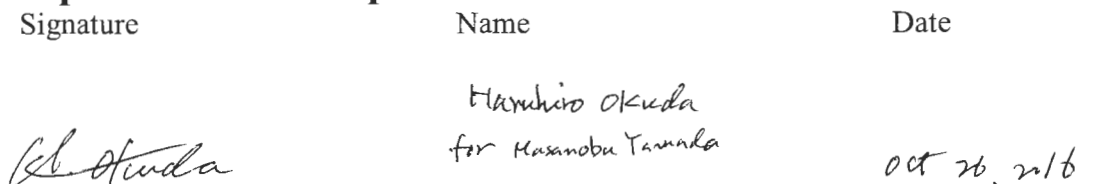 Signature Name Date
Haruhiro Okuda
for Masanobu Yamada
H. Okuda Oct 26, 2016